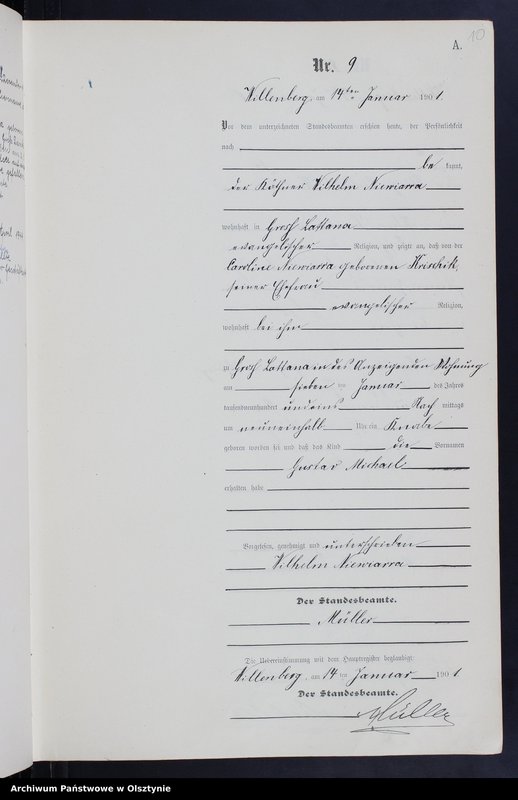 A. 10
Nr. 9
Willenberg, am 14ten Januar 1901.
Vor dem unterzeichneten Standesbeamten erschien heute, der Persönlichkeit
nach
bekannt,
der Käthner Wilhelm Niewiarra
wohnhaft in Groß Lattana
evangelischer Religion, und zeigte an, daß von der
Caroline Niewiarra geborenen Krischik,
seiner Ehefrau
evangelischer Religion,
wohnhaft bei ihm
zu Groß Lattana in des Anzeigenden Wohnung
am sieben ten Januar des Jahres
tausendneunhundert undeins Nach mittags
um neuneinhalb Uhr ein Knabe
geboren worden sei und daß das Kind die Vornamen
Gustav Michael
erhalten habe
Vorgelesen, genehmigt und unterschrieben
Wilhelm Niewiarra
Der Standesbeamte.
Müller
Die Uebereinstimmung mit dem Hauptregister beglaubigt
Willenberg, am 14 ten Januar 1901
Der Standesbeamte.
Müller
Archiwum Państwowe w Olsztynie